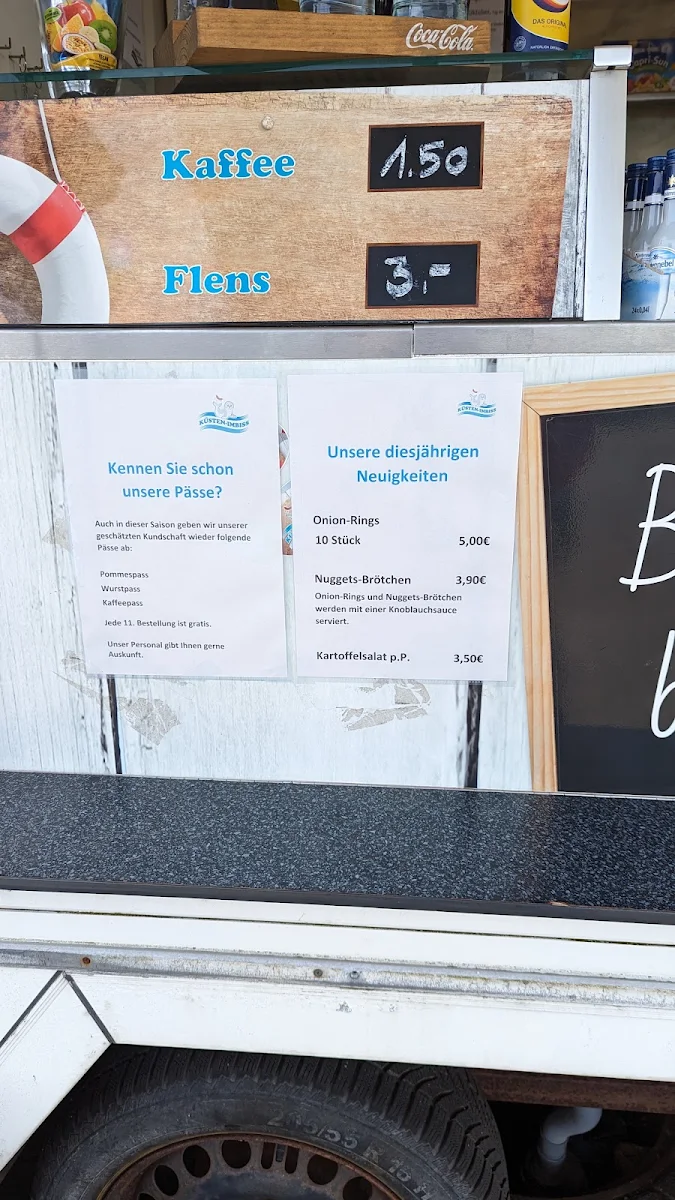 Coca-Cola
DAS ORIGINAL
Capri-Sun
Kaffee 1.50
Flens 3.-
KÜSTEN-IMBISS
Kennen Sie schon
unsere Pässe?
Auch in dieser Saison geben wir unserer
geschätzten Kundschaft wieder folgende
Pässe ab:
Pommespass
Wurstpass
Kaffeepass
Jede 11. Bestellung ist gratis.
Unser Personal gibt Ihnen gerne
Auskunft.
KÜSTEN-IMBISS
Unsere diesjährigen
Neuigkeiten
Onion-Rings
10 Stück 5,00€
Nuggets-Brötchen 3,90€
Onion-Rings und Nuggets-Brötchen
werden mit einer Knoblauchsauce
serviert.
Kartoffelsalat p.P. 3,50€
B
b